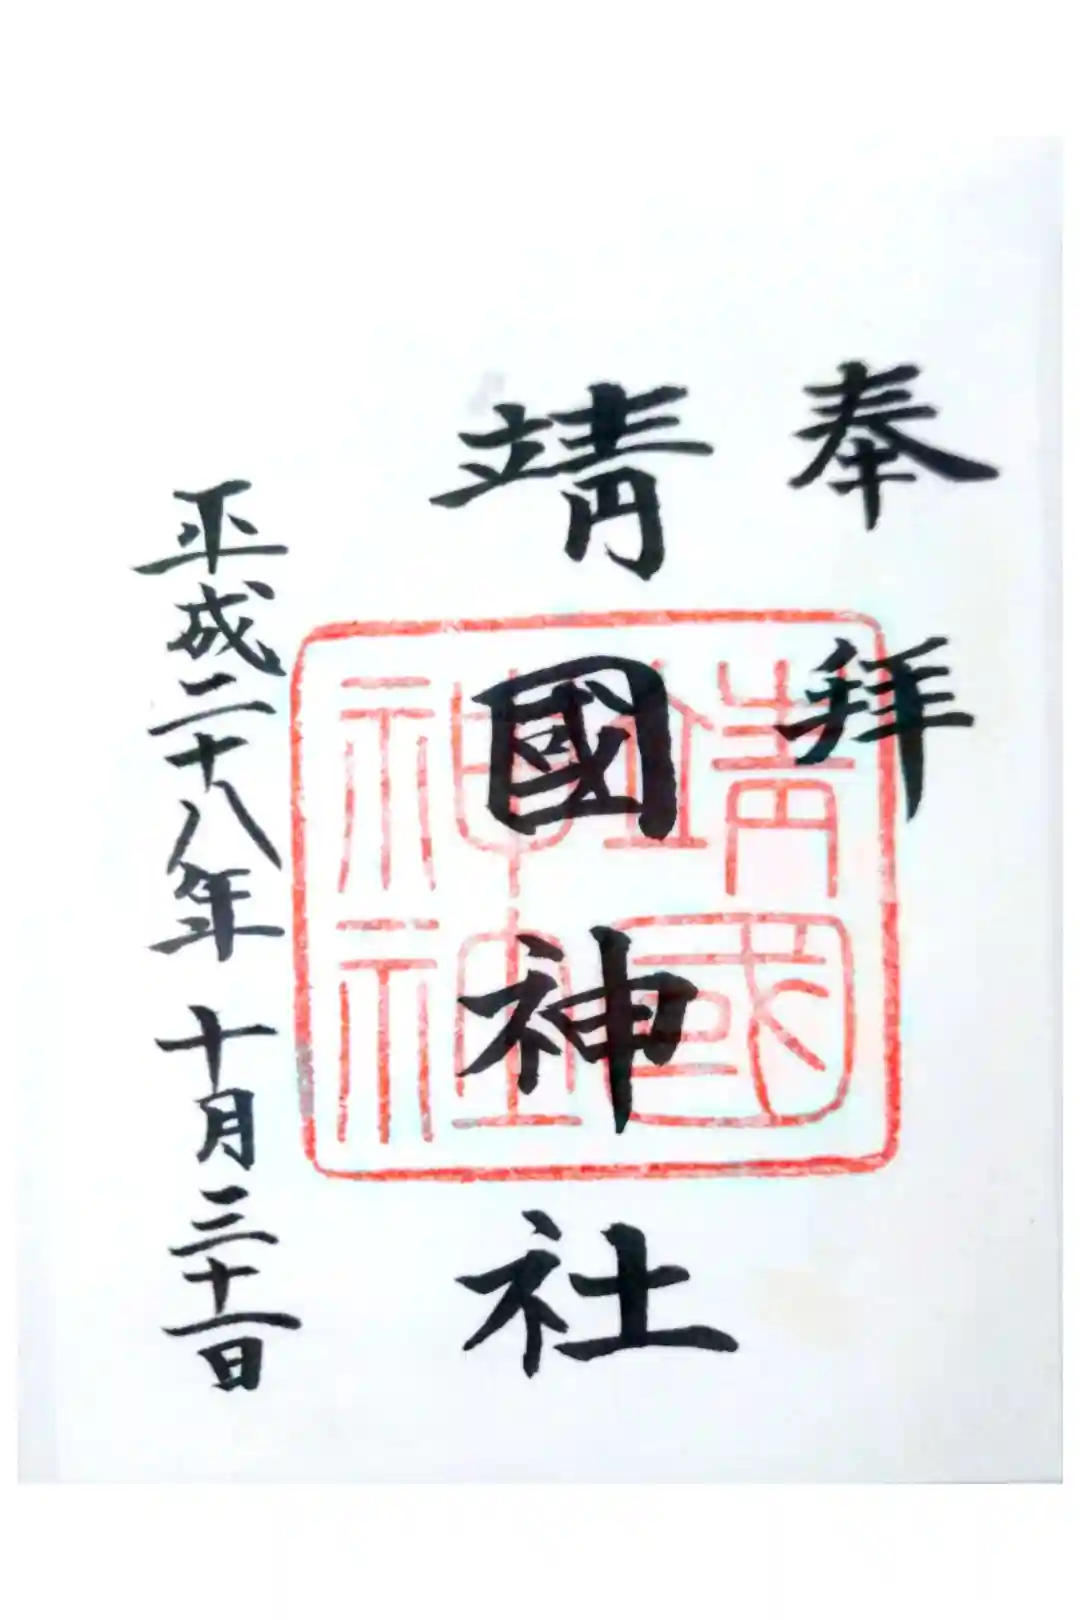 奉拜
靖國神社
靖國神社
平成二十八年 十月三十一日